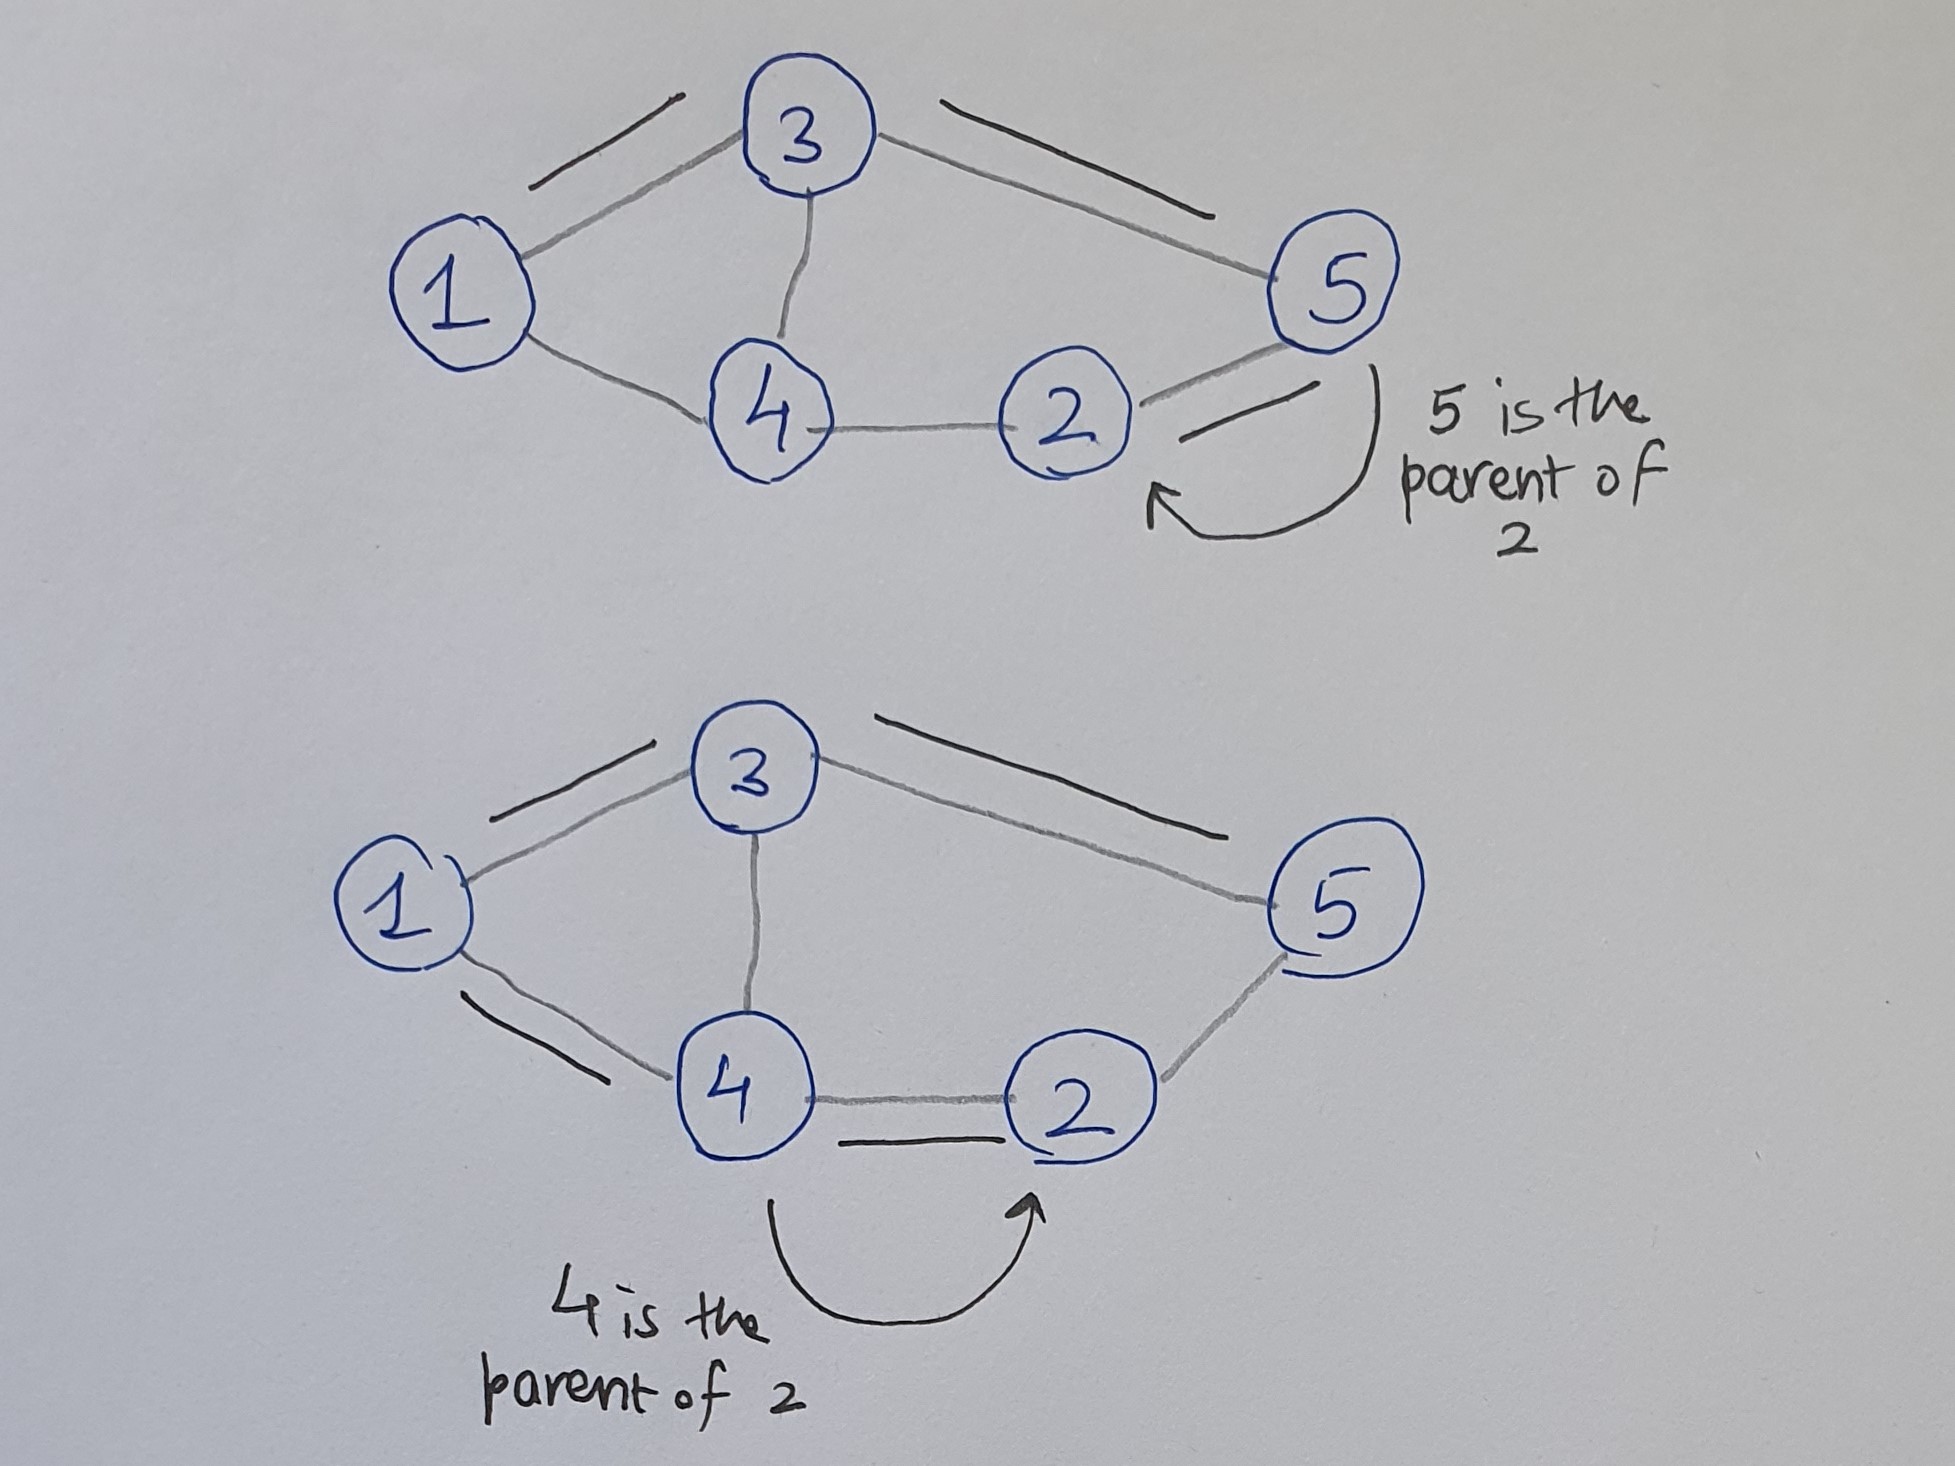 3
1
5
4
2
5 is the
parent of
2
3
1
5
4
2
4 is the
parent of 2